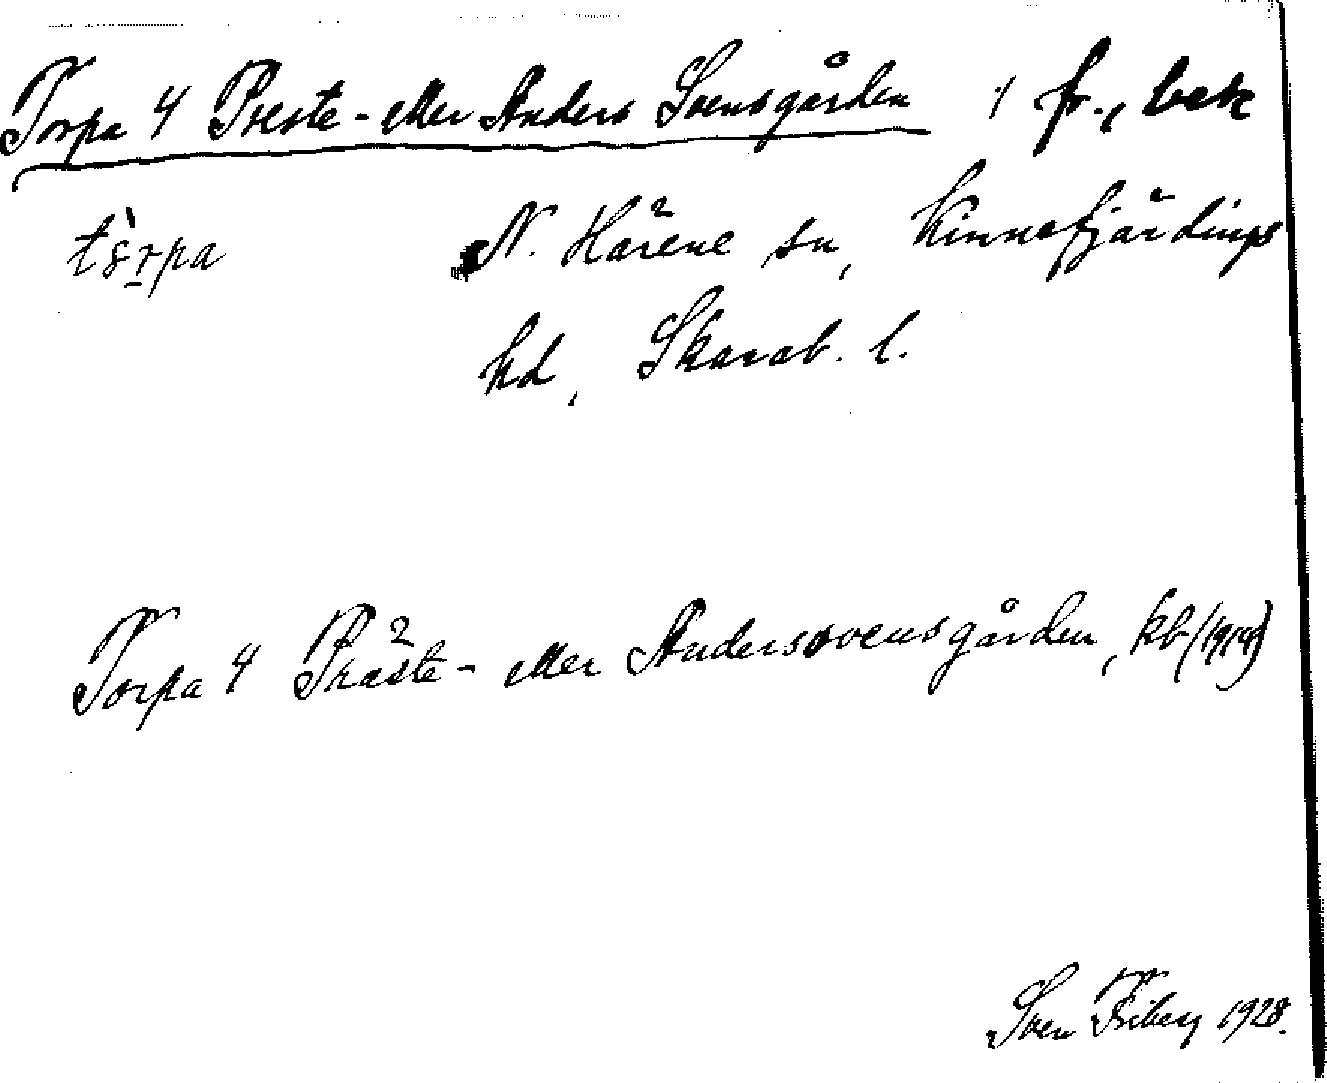 Torpa 4 Preste- eller Anders Svensgården 1 fr., bek
N. Härene sn, Kinnefjärdings
hd, Skarab. l.
Torpa 4 Präste- eller Anderssvensgården, kb (1914)
Sven Friberg 1928.